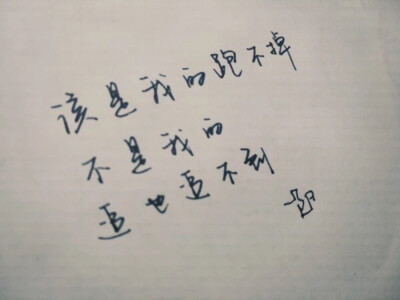 该是我的跑不掉
不是我的
追也追不到